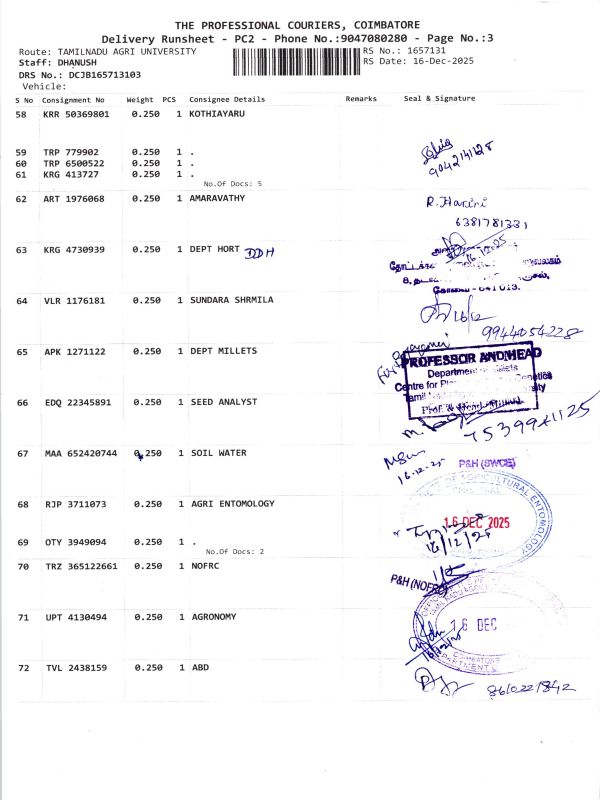 THE PROFESSIONAL COURIERS, COIMBATORE
Delivery Runsheet - PC2 - Phone No.:9047080280 - Page No.:3
Route: TAMILNADU AGRI UNIVERSITY RS No.: 1657131
Staff: DHANUSH RS Date: 16-Dec-2025
DRS No.: DCJB165713103
Vehicle:
S No Consignment No Weight PCS Consignee Details Remarks Seal & Signature
58 KRR 50369801 0.250 1 KOTHIAYARU
59 TRP 779902 0.250 1 .
60 TRP 6500522 0.250 1 .
61 KRG 413727 0.250 1 .
9042141128
No.Of Docs: 5
62 ART 1976068 0.250 1 AMARAVATHY R. Harini
6381781331
63 KRG 4730939 0.250 1 DEPT HORT DDH
16.12.25
64 VLR 1176181 0.250 1 SUNDARA SHRMILA
16/12
9944054228
65 APK 1271122 0.250 1 DEPT MILLETS
PROFESSOR AND HEAD
Department of Millets
Centre for Plant Genetics
66 EDQ 22345891 0.250 1 SEED ANALYST
67 MAA 652420744 0.250 1 SOIL WATER
P&H (SWCE)
16.12.25
68 RJP 3711073 0.250 1 AGRI ENTOMOLOGY
AGRICULTURAL ENTOMOLOGY
16 DEC 2025
16/12/25
69 OTY 3949094 0.250 1 .
No.Of Docs: 2
70 TRZ 365122661 0.250 1 NOFRC
P&H (NOFRC)
71 UPT 4130494 0.250 1 AGRONOMY
16 DEC
72 TVL 2438159 0.250 1 ABD
8610221842